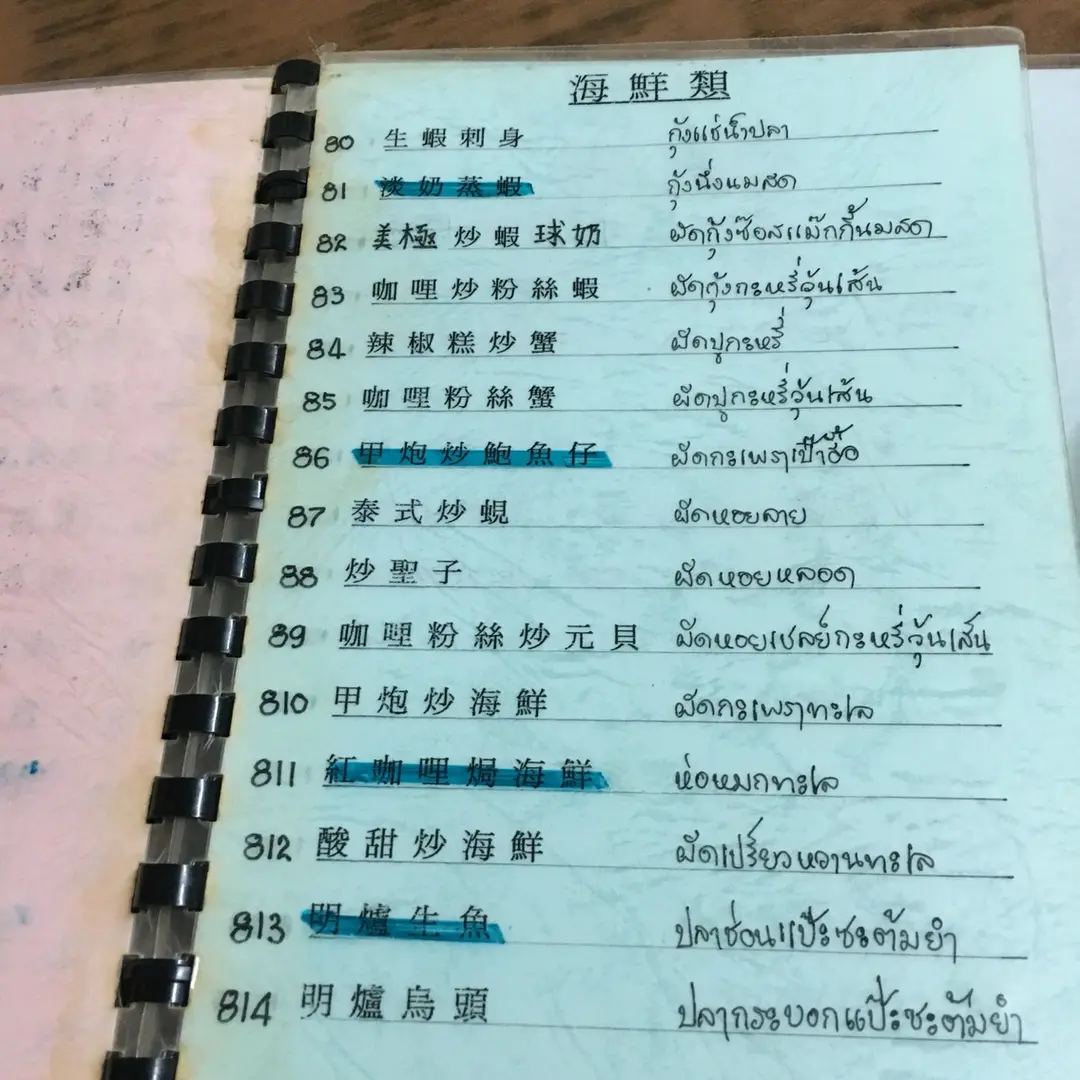 海鮮類
80 生蝦刺身 กุ้งแช่น้ำปลา
81 淡奶蒸蝦 กุ้งนึ่งนมสด
82 美極炒蝦球奶 ผัดกุ้งซ๊อสแม๊กกี้นมสด
83 咖哩炒粉絲蝦 ผัดกุ้งกะหรี่วุ้นเส้น
84 辣椒糕炒蟹 ผัดปูกะหรี่
85 咖哩粉絲蟹 ผัดปูกะหรี่วุ้นเส้น
86 甲炮炒鮑魚仔 ผัดกะเพราเป๋าฮื้อ
87 泰式炒蜆 ผัดหอยลาย
88 炒聖子 ผัดหอยหลอด
89 咖哩粉絲炒元貝 ผัดหอยเชลย์กะหรี่วุ้นเส้น
810 甲炮炒海鮮 ผัดกะเพราทะเล
811 紅咖哩焗海鮮 ห่อหมกทะเล
812 酸甜炒海鮮 ผัดเปรี้ยวหวานทะเล
813 明爐生魚 ปลาช่อนแป๊ะซะต้มยำ
814 明爐烏頭 ปลากระบอกแป๊ะซะต้มยำ